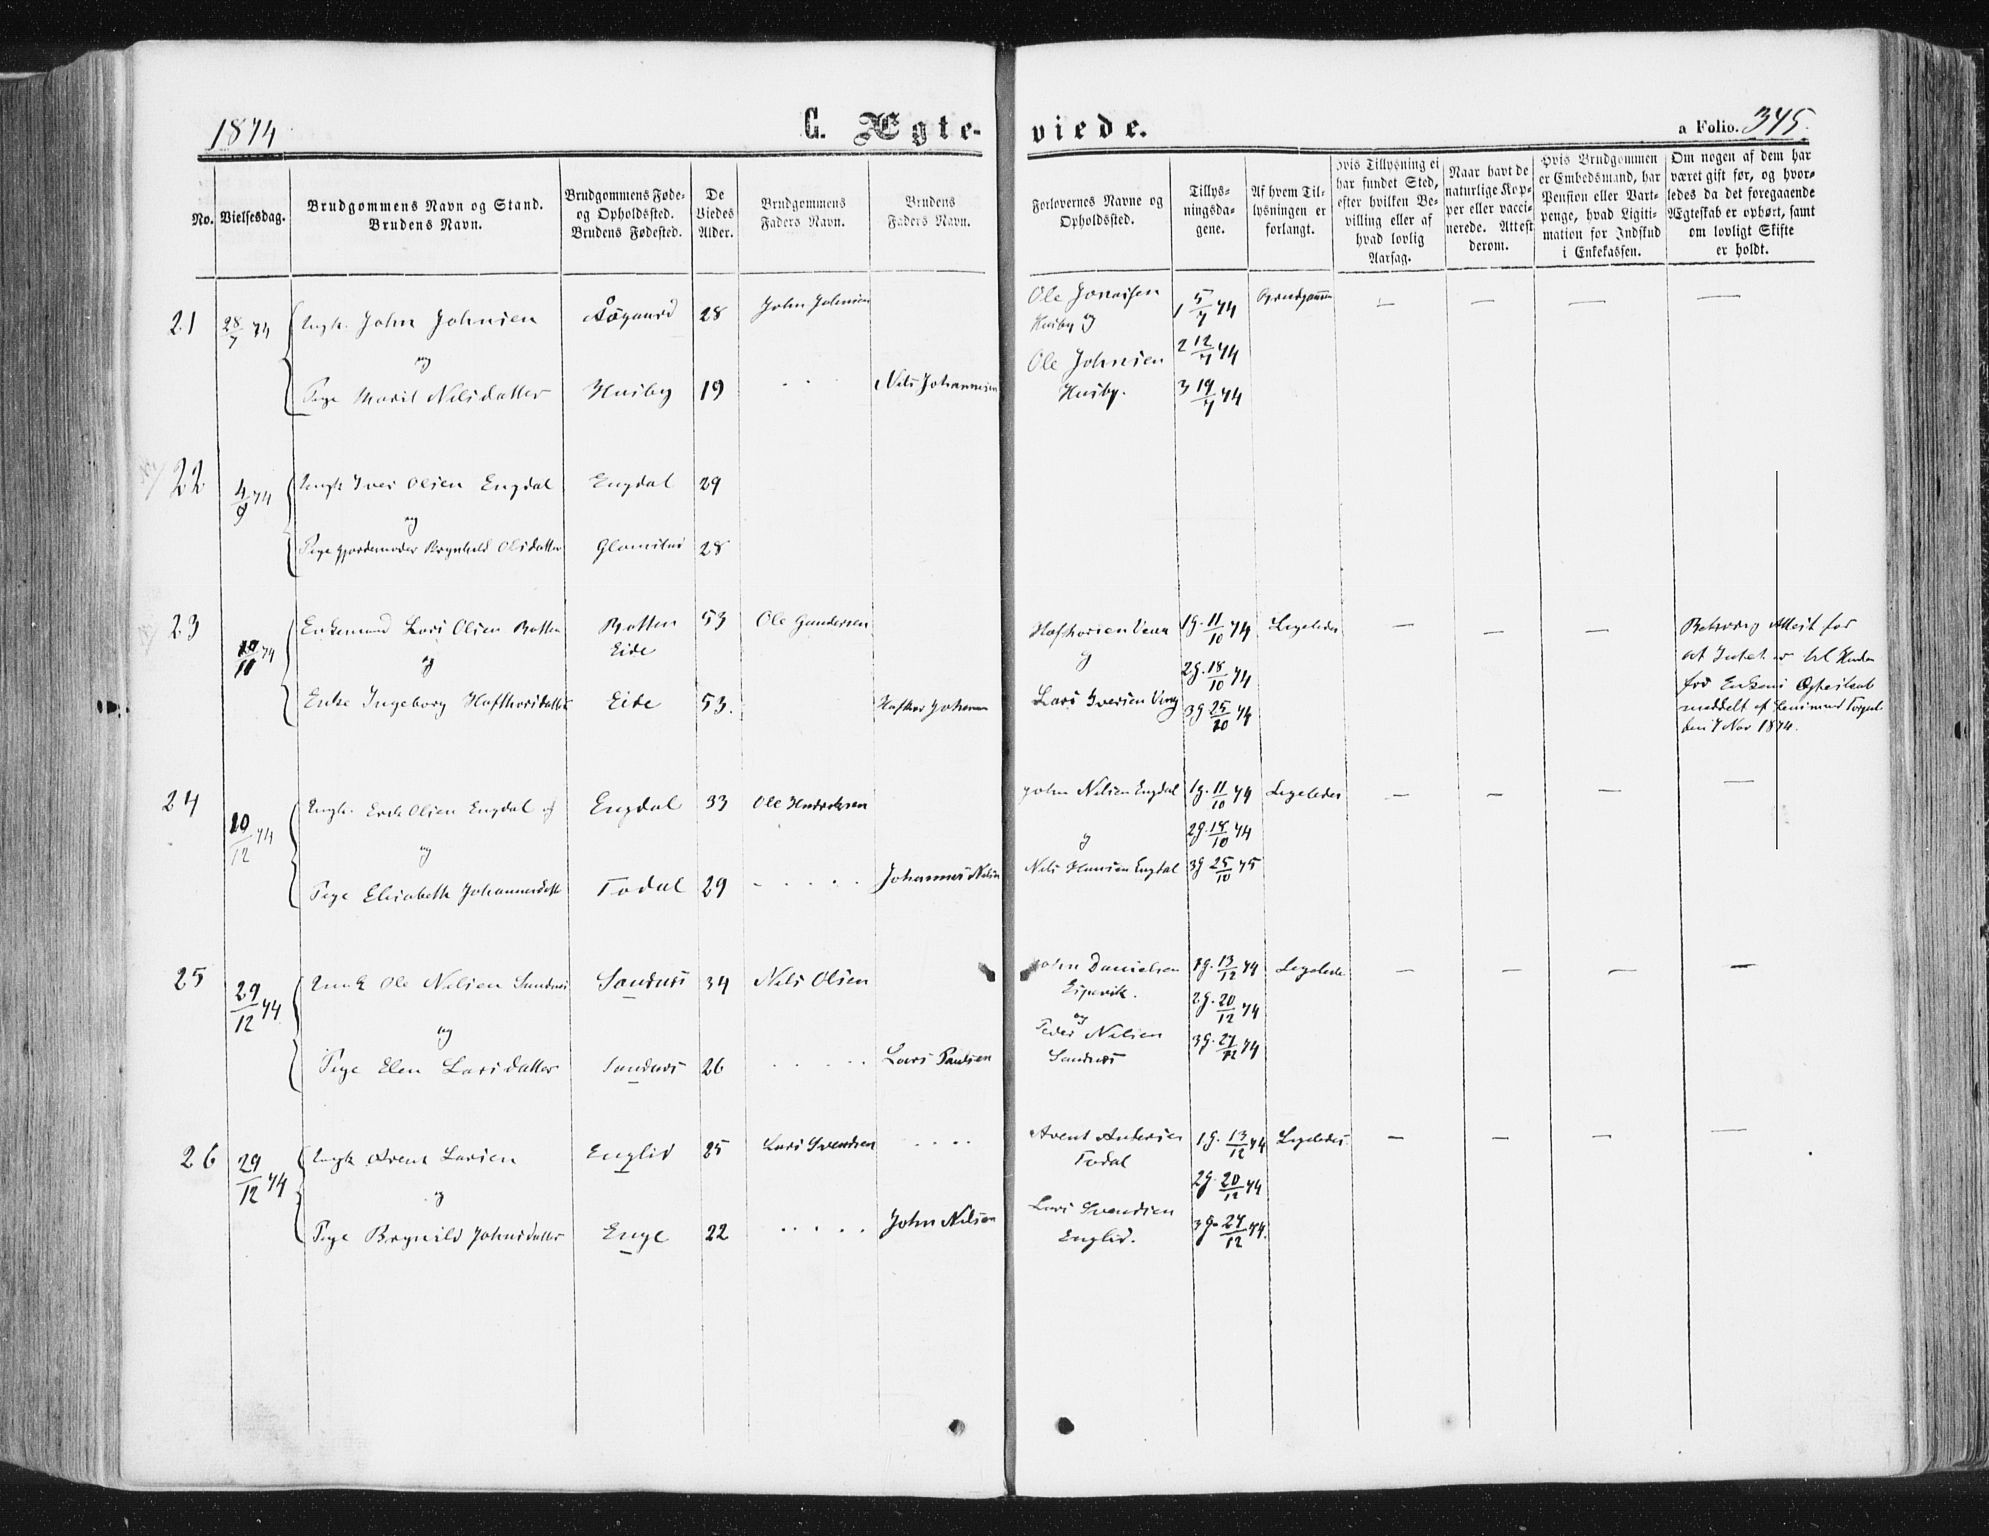 1874
C. Ægte-
viede.
a Folio. 345.
No.
Vielsesdag.
Brudgommens Navn og Stand.
Brudens Navn.
Brudgommens Føde-
og Opholdssted.
Brudens Fødested.
De
Viedes
Alder.
Brudgommens
Faders Navn.
Brudens
Faders Navn.
Forlovernes Navne og
Opholdssted.
Tillys-
ningsda-
gene.
Af hvem Til-
lysningen er
forlangt.
Hvis Tillysning ei
har fundet Sted,
efter hvilken Be-
villing eller af
hvad lovlig
Aarsag.
Naar havt de
naturlige Kop-
per eller vacci-
nerede. Attest
derom.
Hvis Brudgommen
er Embedsmand, har
Pension eller Vart-
penge, hvad Ligiti-
mation for Indskud
i Enkekassen.
Om nogen af dem har
været gift før, og hvor-
ledes da det foregaaende
Ægteskab er ophørt, samt
om lovligt Skifte
er holdt.
21 28/7 74 Ungk. John Johnsen 28 John Johnsen
og
Pige Marit Nilsdatter Husby 19 Nils Johannesen
Ole Jonassen
Husby og
Ole Johnsen
Husby.
1 5/7 74
2 12/7 74
3 19/7 74
Brudgommen
— — — —
22 4/9 74 Ungk Iver Olsen Engdal Engdal 29
og
Pige Gjordemoder Brynhild Olsdatter 28
23 10/11 74 Enkemand Lars Olsen Botten Botten 53 Ole Gundersen
Eide
og
Enke Ingeborg Hafthorsdatter Eide 53. Hafthor
og
Lars Iversen
1g. 11/10 74
2g. 18/10 74
3g 25/10 74
Ligeledes
— — —
Attest for
at Intet er til Hinder
for Enkens Ægteskab
meddelt af
den 7 Nov 1874.
24 10/12 74 Ungk. Erik Olsen Engdal Engdal 33 Ole
og
Pige Elisabeth Johannesdatt Todal 29 Johannes Nilsen
John Nilsen Engdal
og
Nils Hansen Engdal
1g. 11/10 74
2g. 18/10 74
3g 25/10 75
Ligeledes
— — — —
25 29/12 74 Ungk Ole Nilsen Sandnes Sandnes 34 Nils Olsen
og
Pige Elen Larsdatter Sandnes 26 Lars Paulsen
John Danielsen
og
Peder Nilsen
Sandnes
1g. 13/12 74
2g. 20/12 74
3g. 27/12 74
Ligelede
— — — —
26 29/12 74 Ungk Arent Larsen Englid 25 Lars Svendsen
og
Pige Brynild Johnsdatter Enge 22 John Nilsen
Arent Andersen
Todal
Lars Svendsen
Englid.
1g. 13/12 74
2g. 20/12 74
3g. 27/12 74.
Ligeledes
— — — —